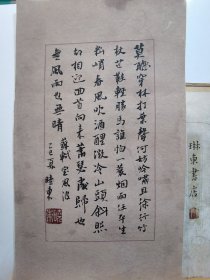 莫聽穿林打葉聲何妨吟嘯且徐行竹
杖芒鞋輕勝馬誰怕一蓑烟雨任平生
料峭春風吹酒醒微冷山頭斜照
却相迎回首向來蕭瑟處歸也
無風雨也無晴 蘇軾定風波
乙巳夏 琳東
琳東書店